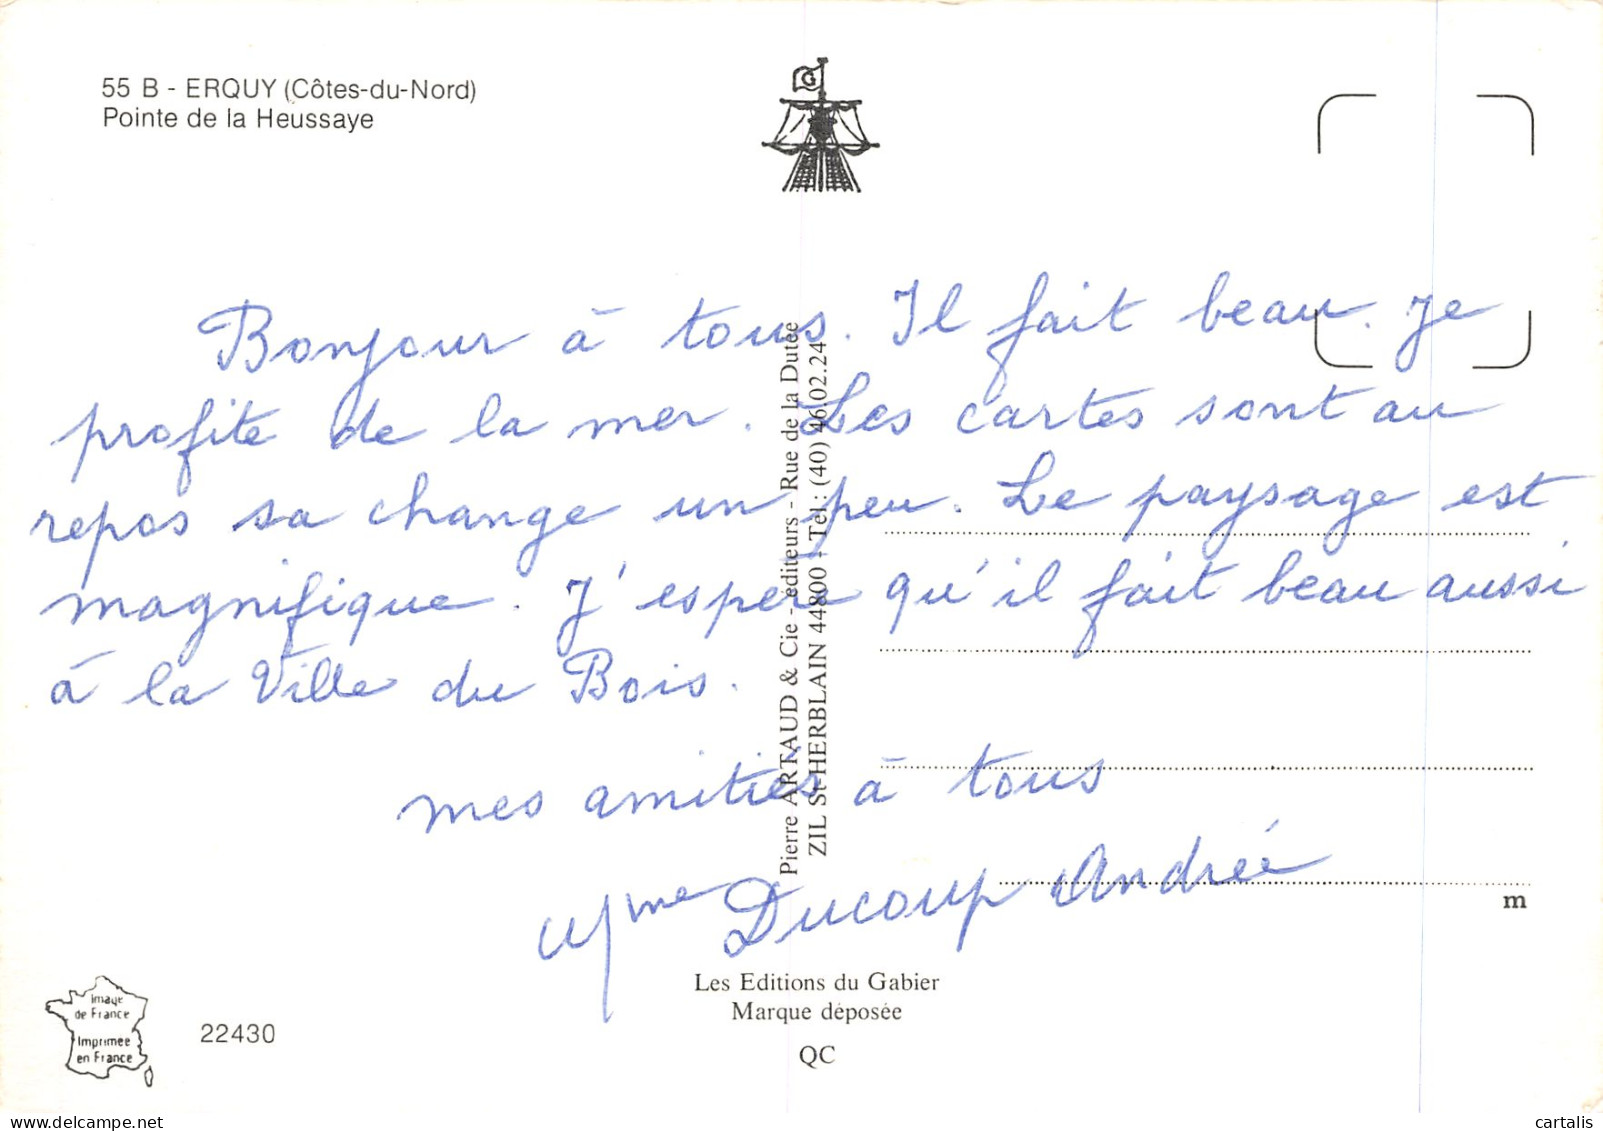 55 B - ERQUY (Côtes-du-Nord)
Pointe de la Heussaye
G
Bonjour à tous. Il fait beau. Je
profite de la mer. Les cartes sont au
repos sa change un peu. Le paysage est
magnifique. J'espère qu'il fait beau aussi
à la Ville du Bois.
mes amitiés à tous
Mme Ducoup Andrée
Pierre ARTAUD & Cie - éditeurs - Rue de la Dutée
ZIL St-HERBLAIN 44800 - Tél : (40) 46.02.24
m
Les Editions du Gabier
Marque déposée
QC
Image
de France
Imprimée
en France
22430
cartalis